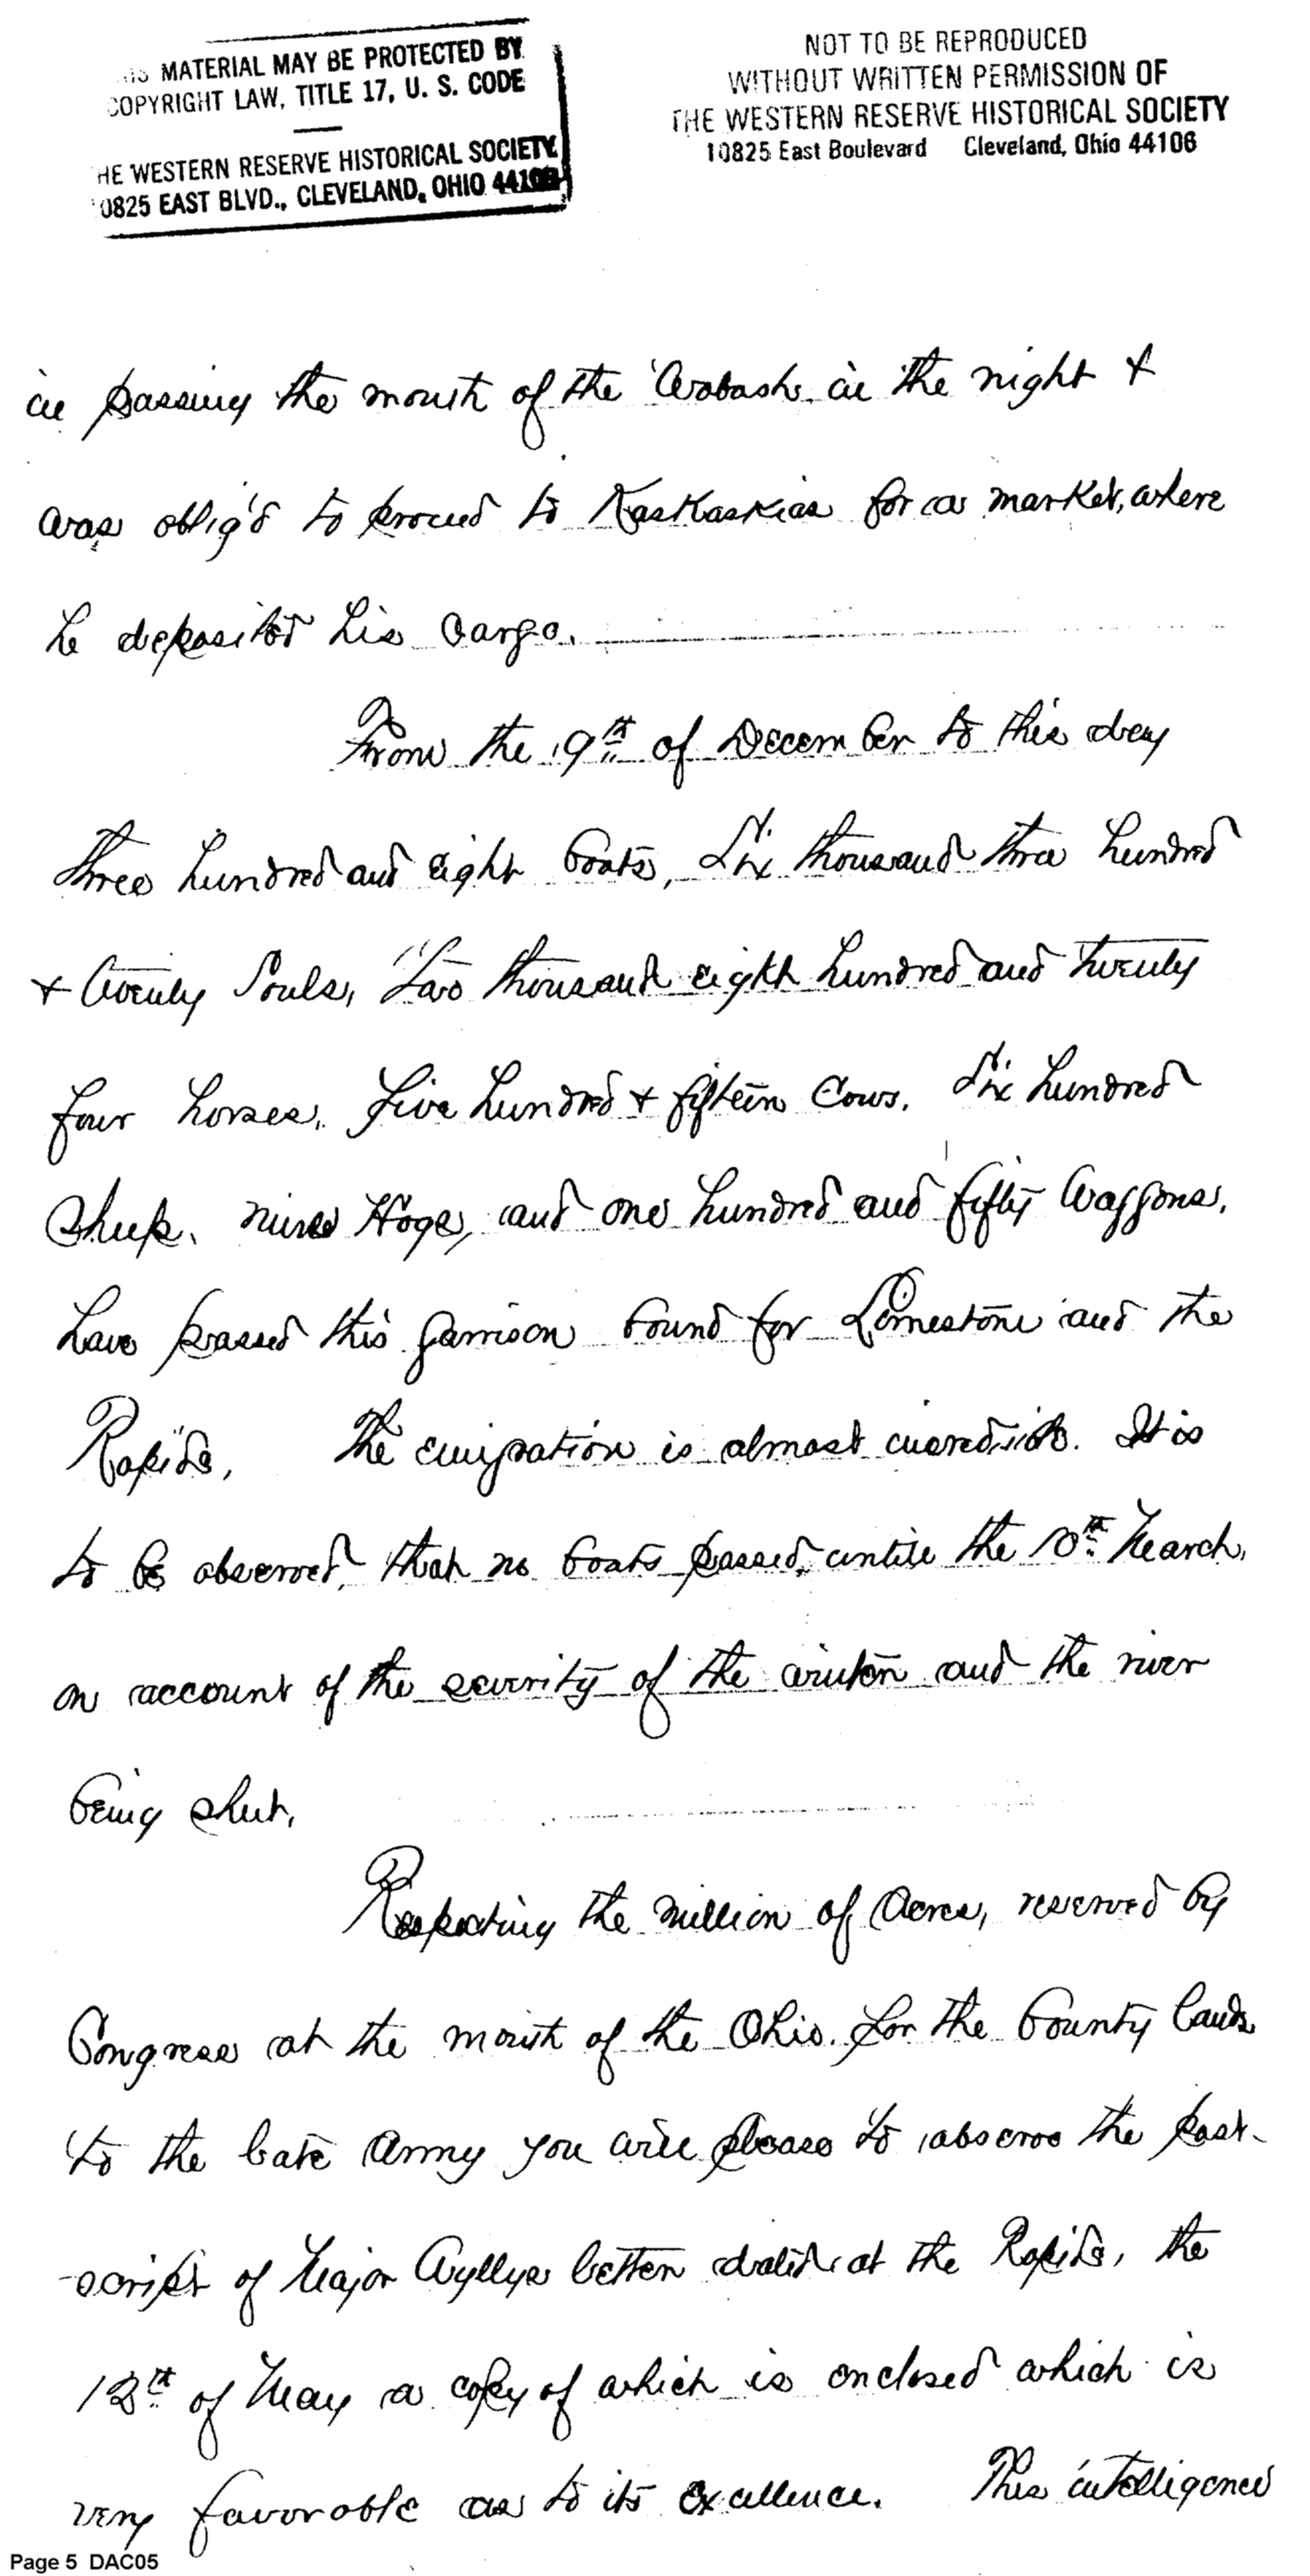 MATERIAL MAY BE PROTECTED BY
COPYRIGHT LAW, TITLE 17, U. S. CODE
HE WESTERN RESERVE HISTORICAL SOCIETY
0825 EAST BLVD., CLEVELAND, OHIO 44106
NOT TO BE REPRODUCED
WITHOUT WRITTEN PERMISSION OF
THE WESTERN RESERVE HISTORICAL SOCIETY
10825 East Boulevard Cleveland, Ohio 44106
in passing the mouth of the Wabash in the night &
was oblig'd to proceed to Kaskaskias for a market, where
he deposited his Cargo.
From the 9th of December to this day
three hundred and eight boats, Six thousand three hundred
& twenty Souls, Two thousand eight hundred and twenty
four horses, five hundred & fifteen Cows, Six hundred
Sheep, nine Hogs, and one hundred and fifty Waggons,
have passed this garrison bound for Limestone and the
Rapids, The emigration is almost incredible. It is
to be observed, that no boats passed, untill the 10th March,
on account of the severity of the winter and the river
being shut,
Respecting the million of Acres, reserved by
Congress at the mouth of the Ohio for the bounty lands
to the late Army you will please to observe the post-
-script of Major Wyllys letter dated at the Rapids, the
12th of May a copy of which is enclosed which is
very favorable as to its excellence. This intelligence
Page 5 DAC05